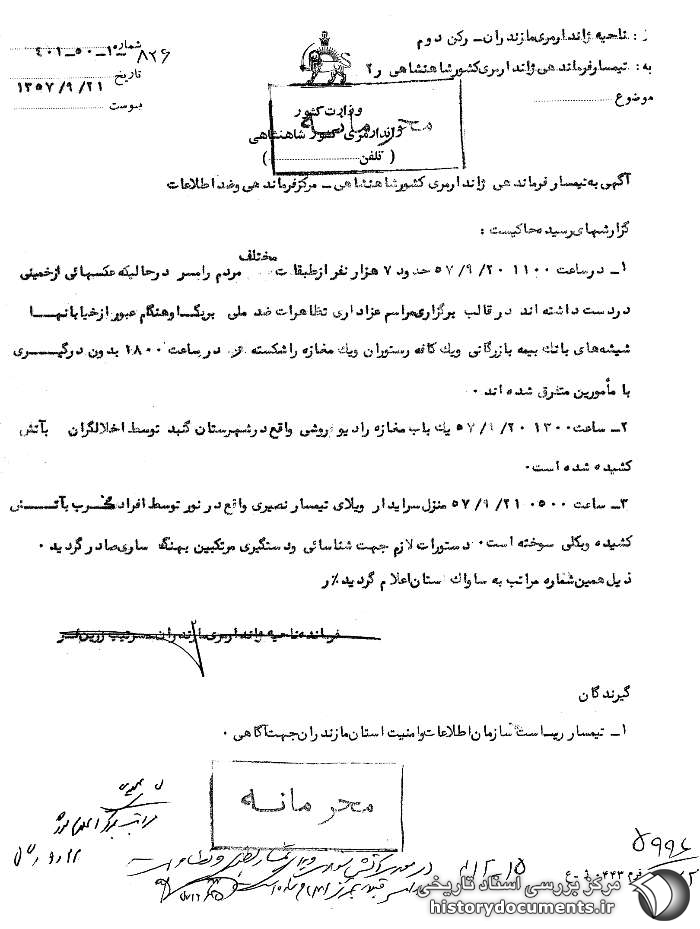 ز : ناحیه ژاندارمری مازندران ـ رکن دوم
به : تیمسار فرماندهی ژاندارمری کشور شاهنشاهی ر۲
موضوع
شماره ۸۲۶ ـ ۱ ـ ۵۰ ـ ۴۰۱
تاریخ ۱۳۵۷/۹/۲۱
پیوست
وزارت کشور
ژاندارمری کشور شاهنشاهی
( تلفن )
محرمانه
آگهی به تیمسار فرماندهی ژاندارمری کشور شاهنشاهی ـ مرکز فرماندهی وضد اطلاعات
گزارشهای رسیده حاکیست :
۱ـ در ساعت ۱۱۰۰ ۵۷/۹/۲۰ حدود ۷ هزار نفر از طبقات مختلف مردم رامسر در حالیکه عکسهائی از خمینی
در دست داشته اند در قالب برگزاری مراسم عزاداری تظاهرات ضد ملی برپا و هنگام عبور از خیابانها
شیشه های بانک بیمه بازرگانی ویک کافه رستوران ویک مغازه را شکسته در ساعت ۱۸۰۰ بدون درگیری
با مأمورین متفرق شده اند ۰
۲ـ ساعت ۱۳۰۰ ۵۷/۹/۲۰ یک باب مغازه رادیو فروشی واقع در شهرستان گنبد توسط اخلالگران بآتش
کشیده شده است۰
۳ـ ساعت ۰۵۰۰ ۵۷/۹/۲۱ منزل سرایدار ویلای تیمسار نصیری واقع در نور توسط افراد مخرب بآتش
کشیده وبکلی سوخته است۰ دستورات لازم جهت شناسائی ودستگیری مرتکبین بهنگ ساری صادر گردید ۰
ذیل همین شماره مراتب به ساواک استان اعلام گردید٪ر
فرمانده ناحیه ژاندارمری مازندران ـ سرتیپ
گیرندگان
۱ـ تیمسار ریاست سازمان اطلاعات وامنیت استان مازندران جهت آگاهی ۰
محرمانه
مرکز بررسی اسناد تاریخی
historydocuments.ir